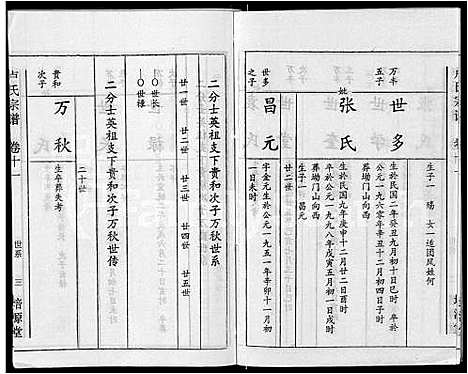 生子一 昌 女一适团风姓何
万丰
五子
世多
生於民国二年癸丑九月初十日巳时 卒於
公元一九六〇年庚子十二月初四日子时
葬塆门山向西
妣
张氏
生於民国九年庚申十二月廿二日酉时
公元一九九八年戊寅五月初一日戌时
葬塆门山向西
生子一 昌元
廿二世
世多
之子
昌元
字金元生於公元一九五一年辛卯十一月初
一日未时
二分士英祖支下贵和次子万秋世系
廿一世 廿三世 廿四世 廿五世
世长
世禄
二分士英祖支下贵和次子万秋世传
二十世
贵和
次子
万秋
生卒葬失考
卢氏宗谱 卷十一
世系 三
培源堂